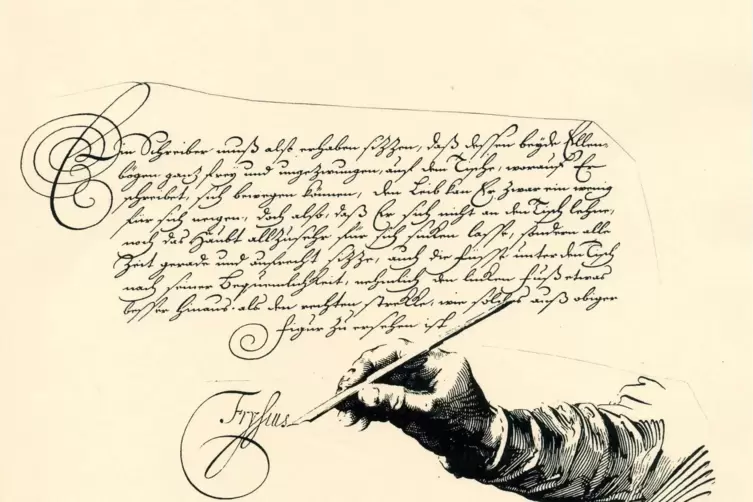 Ein Schreiber muß also erhaben sizzen, daß dessen beyde Ellen-
bögen ganz frey und ungezwungen, auf dem Tische, worauf Er
schreibet, sich bewegen können, den Leib kan Er zwar ein wenig
für sich neigen, doch also, daß Er sich nicht an den Tisch lehne,
noch das Haubt allzusehr für sich sinken lasse, sondern alle
Zeit gerade und aufrecht sizze, auch die Füsse unter dem Tisch
nach seiner Bequemlichkeit, nehmlich den linken Fuß etwas
besser hinaus als den rechten strekke, wie solches auß obiger
Figur zu ersehen ist
Frysius